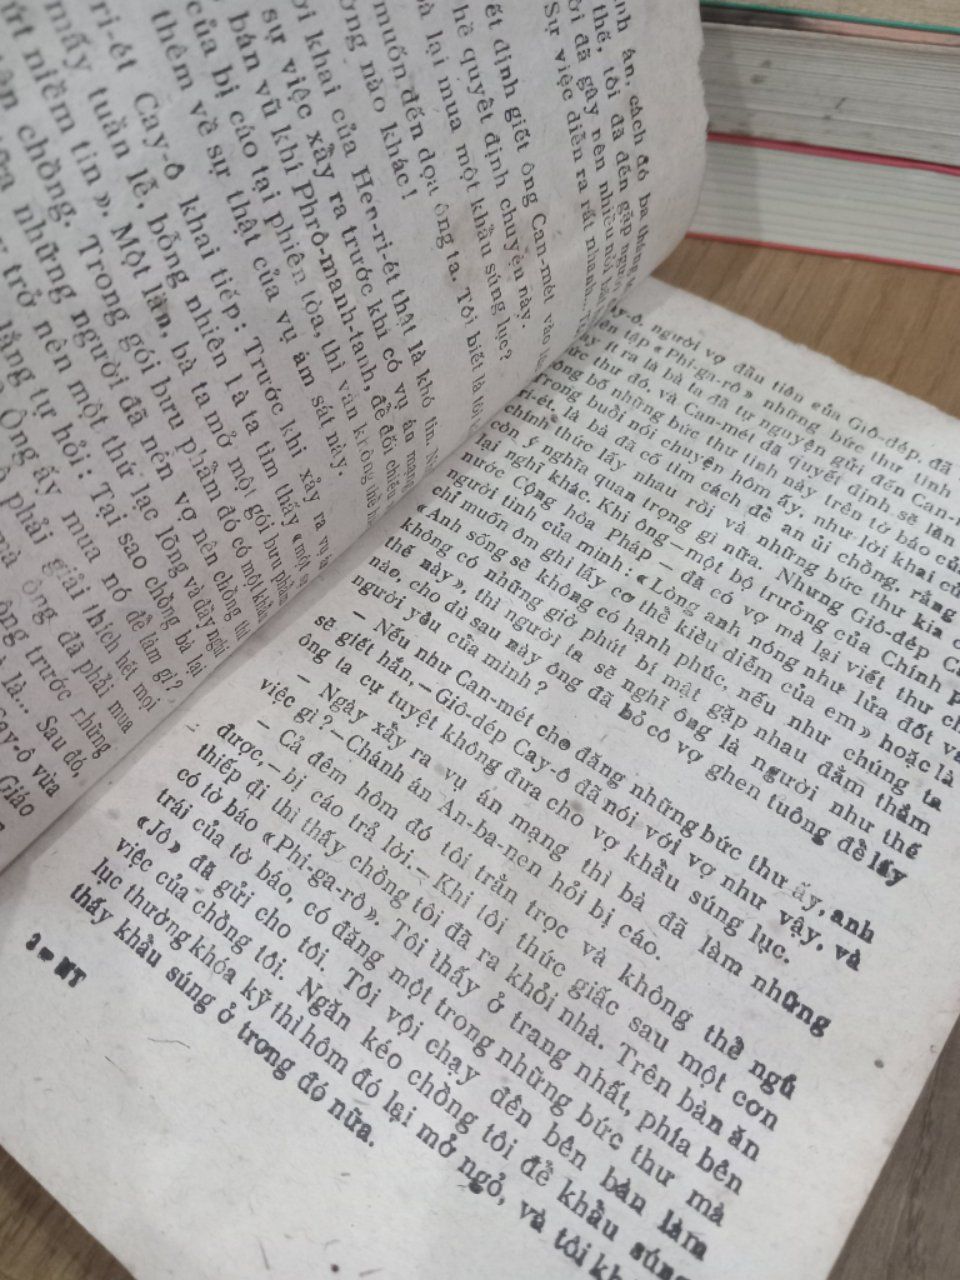 ình án, cách đó ba tháng,
thế, tôi đã đến gặp người
ời đã gây nên nhiều nỗi bất
Sự việc diễn ra rất nhanh
ết định giết ông Can-mét vào
hề quyết định chuyện này.
à lại mua một khẩu súng lục?
muốn đến dọa ông ta. Tôi biết là tôi
ông nào khác!
ời khai của Hen-ri-ét thật là khó tin.
sự việc xẩy ra trước khi có vụ án mạng
bán vũ khí Phrô-manh-tanh, để đối chiếu
của bị cáo tại phiên tòa, thì vẫn không
thêm về sự thật của vụ ám sát này.
ri-ét Cay-ô khai tiếp: Trước khi xẩy ra vụ
mấy tuần lễ, bỗng nhiên là ta tìm thấy «một
ứt niềm tin». Một lần, bà ta mở một gói bưu phẩm
chồng. Trong gói bưu phẩm đó có một khẩu
những người đã nên vợ nên chồng thì
trở nên một thứ lạc lõng và đầy nghi
lắng tự hỏi: Tại sao chồng bà lại
Ông ấy mua nó để làm gì?
phải giải thích hết mọi
mà ông đã phải mua
ông trước những
là... Sau đó,
ay-ô vừa
Giáo
ay-ô, người vợ đầu tiên của Giô-dép, đã
ên tập «Phi-ga-rô» những bức thư tình
ay ít ra là bà ta đã tự nguyện gửi đến Can-
ức thư đó, và Can-mét đã quyết định sẽ lần
ông bố những bức thư tình này trên tờ báo củ
Trong buổi nói chuyện hôm ấy, như lời khai củ
ri-ét, là bà đã cố tìm cách để an ủi chồng, rằng
chính thức lấy nhau rồi và những bức thư kia
còn ý nghĩa quan trọng gì nữa. Nhưng Giô-dép Ca
lại nghĩ khác. Khi ông — một bộ trưởng của Chính p
nước Cộng hòa Pháp — đã có vợ mà lại viết thư ch
người tình của mình: «Lòng anh nóng như lửa đốt và
chỉ muốn ôm ghì lấy cơ thể kiều diễm của em» hoặc là
«Anh sống sẽ không có hạnh phúc, nếu như chúng ta
không có những giờ phút bí mật gặp nhau đằm thắm
thế này», thì người ta sẽ nghĩ ông là người như thế
nào, cho dù sau này ông đã bỏ cô vợ ghen tuông để lấy
người yêu của mình?
— Nếu như Can-mét cho đăng những bức thư ấy, anh
sẽ giết hắn, — Giô-dép Cay-ô đã nói với vợ như vậy, và
ông ta cự tuyệt không đưa cho vợ khẩu súng lục.
— Ngày xẩy ra vụ án mạng thì bà đã làm những
việc gì? — Chánh án An-ba-nen hỏi bị cáo.
— Cả đêm hôm đó tôi trằn trọc và không thể ngủ
được, — bị cáo trả lời. — Khi tôi thức giấc sau một cơn
thiếp đi thì thấy chồng tôi đã ra khỏi nhà. Trên bàn ăn
có tờ báo «Phi-ga-rô». Tôi thấy ở trang nhất, phía bên
trái của tờ báo, có đăng một trong những bức thư mà
«Jô» đã gửi cho tôi. Tôi vội chạy đến bên bàn làm
việc của chồng tôi. Ngăn kéo chồng tôi để khẩu súng
lục thường khóa kỹ thì hôm đó lại mở ngỏ, và tôi kh
thấy khẩu súng ở trong đó nữa.
3 — NT